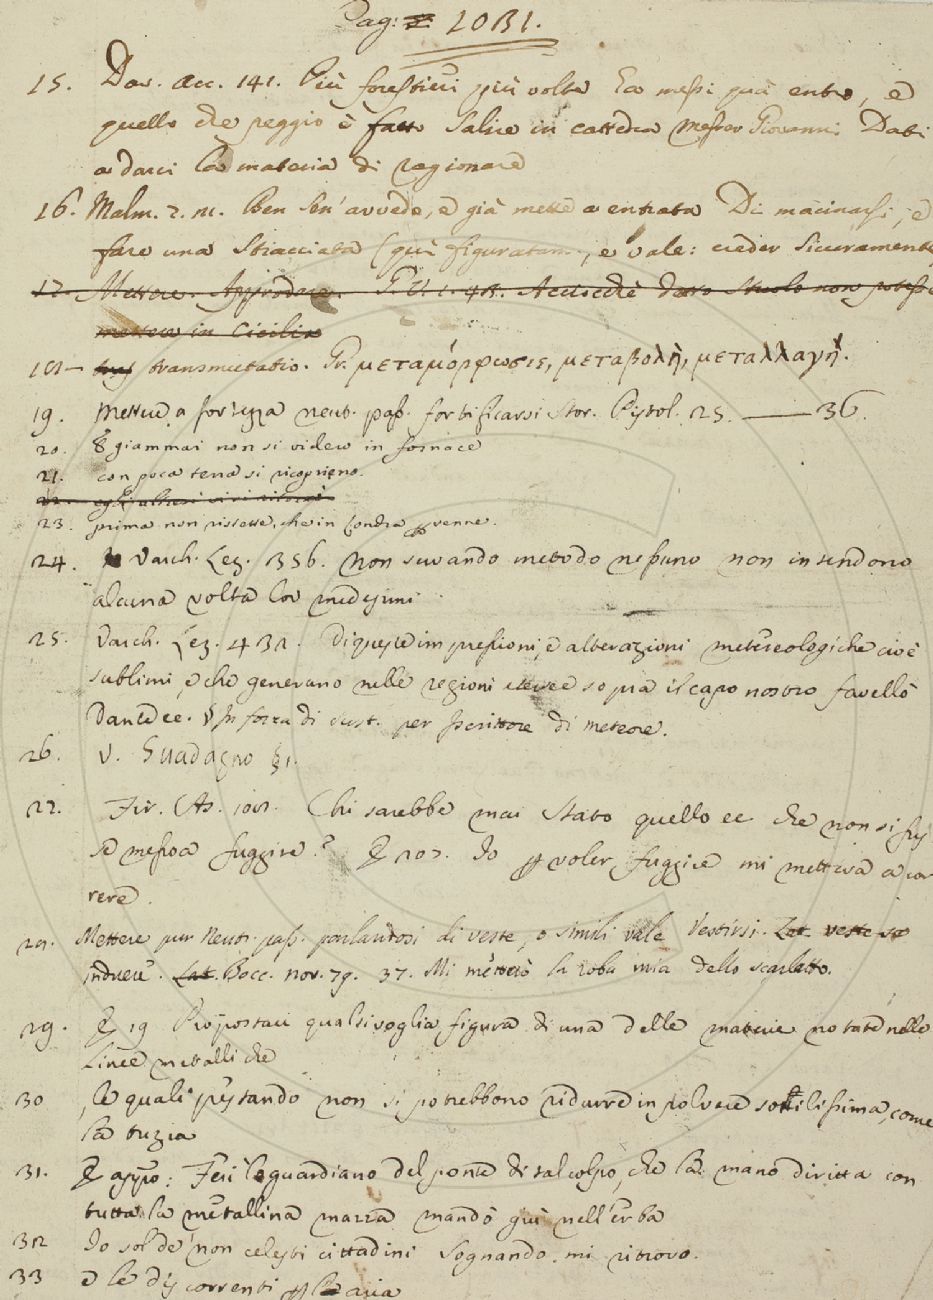 Pag: 1031.
15. Dav. Acc. 141. Più forestieri più volte ha messi quà entro, e
quello che peggio è fatto salire in cattedra messer Giovanni Dati
a darci la materia di ragionare
16. Malm. 2. 11. Ben sen'avvede, e già mette a entrata Di macinarsi, e
fare una stiacciata (quì figuratam., e vale: creder sicuramente
17. Mettere. Approdare. G. V. 1. Acciocchè detto stuolo non potesse
mettere in Cicilia
18 transmutatio. Gr. μεταμόρφωσις, μεταβολὴ, μεταλλαγή.
19. Mettere a fortezza neut. pass. fortificarsi Stor. Pistol. 25. — 36.
20. E giammai non si videro in fornace
21. con poca terra si ricoprieno.
22. egli altresì
23. prima non ristette, che in Londra pvenne.
24. Varch. Lez. 356. Non servando metodo nessuno non intendono
alcuna volta lor medesimi
25. Varch. Lez. 432. Di queste impressioni, e alterazioni metereologiche cioè
sublimi, e che generano nelle regioni sopra il capo nostro favellò
Dante ec. § In forza di sust. per scrittore di meteore.
26. V. Guadagno §1.
27. Fir. As. 102. Chi sarebbe mai stato quello ec che non si fus
se messoa fuggire? E 207. Io p voler fuggire mi metteva a cor
rere.
28. Mettere pur neutr. pass. parlandosi di veste, o simili vale Vestirsi. Lat. veste se
induere. Lat. Bocc. nov. 79. 37. Mi metterò la roba mia dello scarlatto.
29. E 19 Propostaci qualsivoglia figura di una delle materie notate nelle
Linee metalliche
30 , le quali pestando non si potrebbono ridurre in polvere sottilissima, come
la tuzia
31. E appo: Ferì lo guardiano del ponte di tal colpo, che la mano diritta con
tutta la metallina mazza mandò giù nell'erba
32 Io sol de' non celesti cittadini sognando mi ritrovo.
33 e le discorrenti p la aria